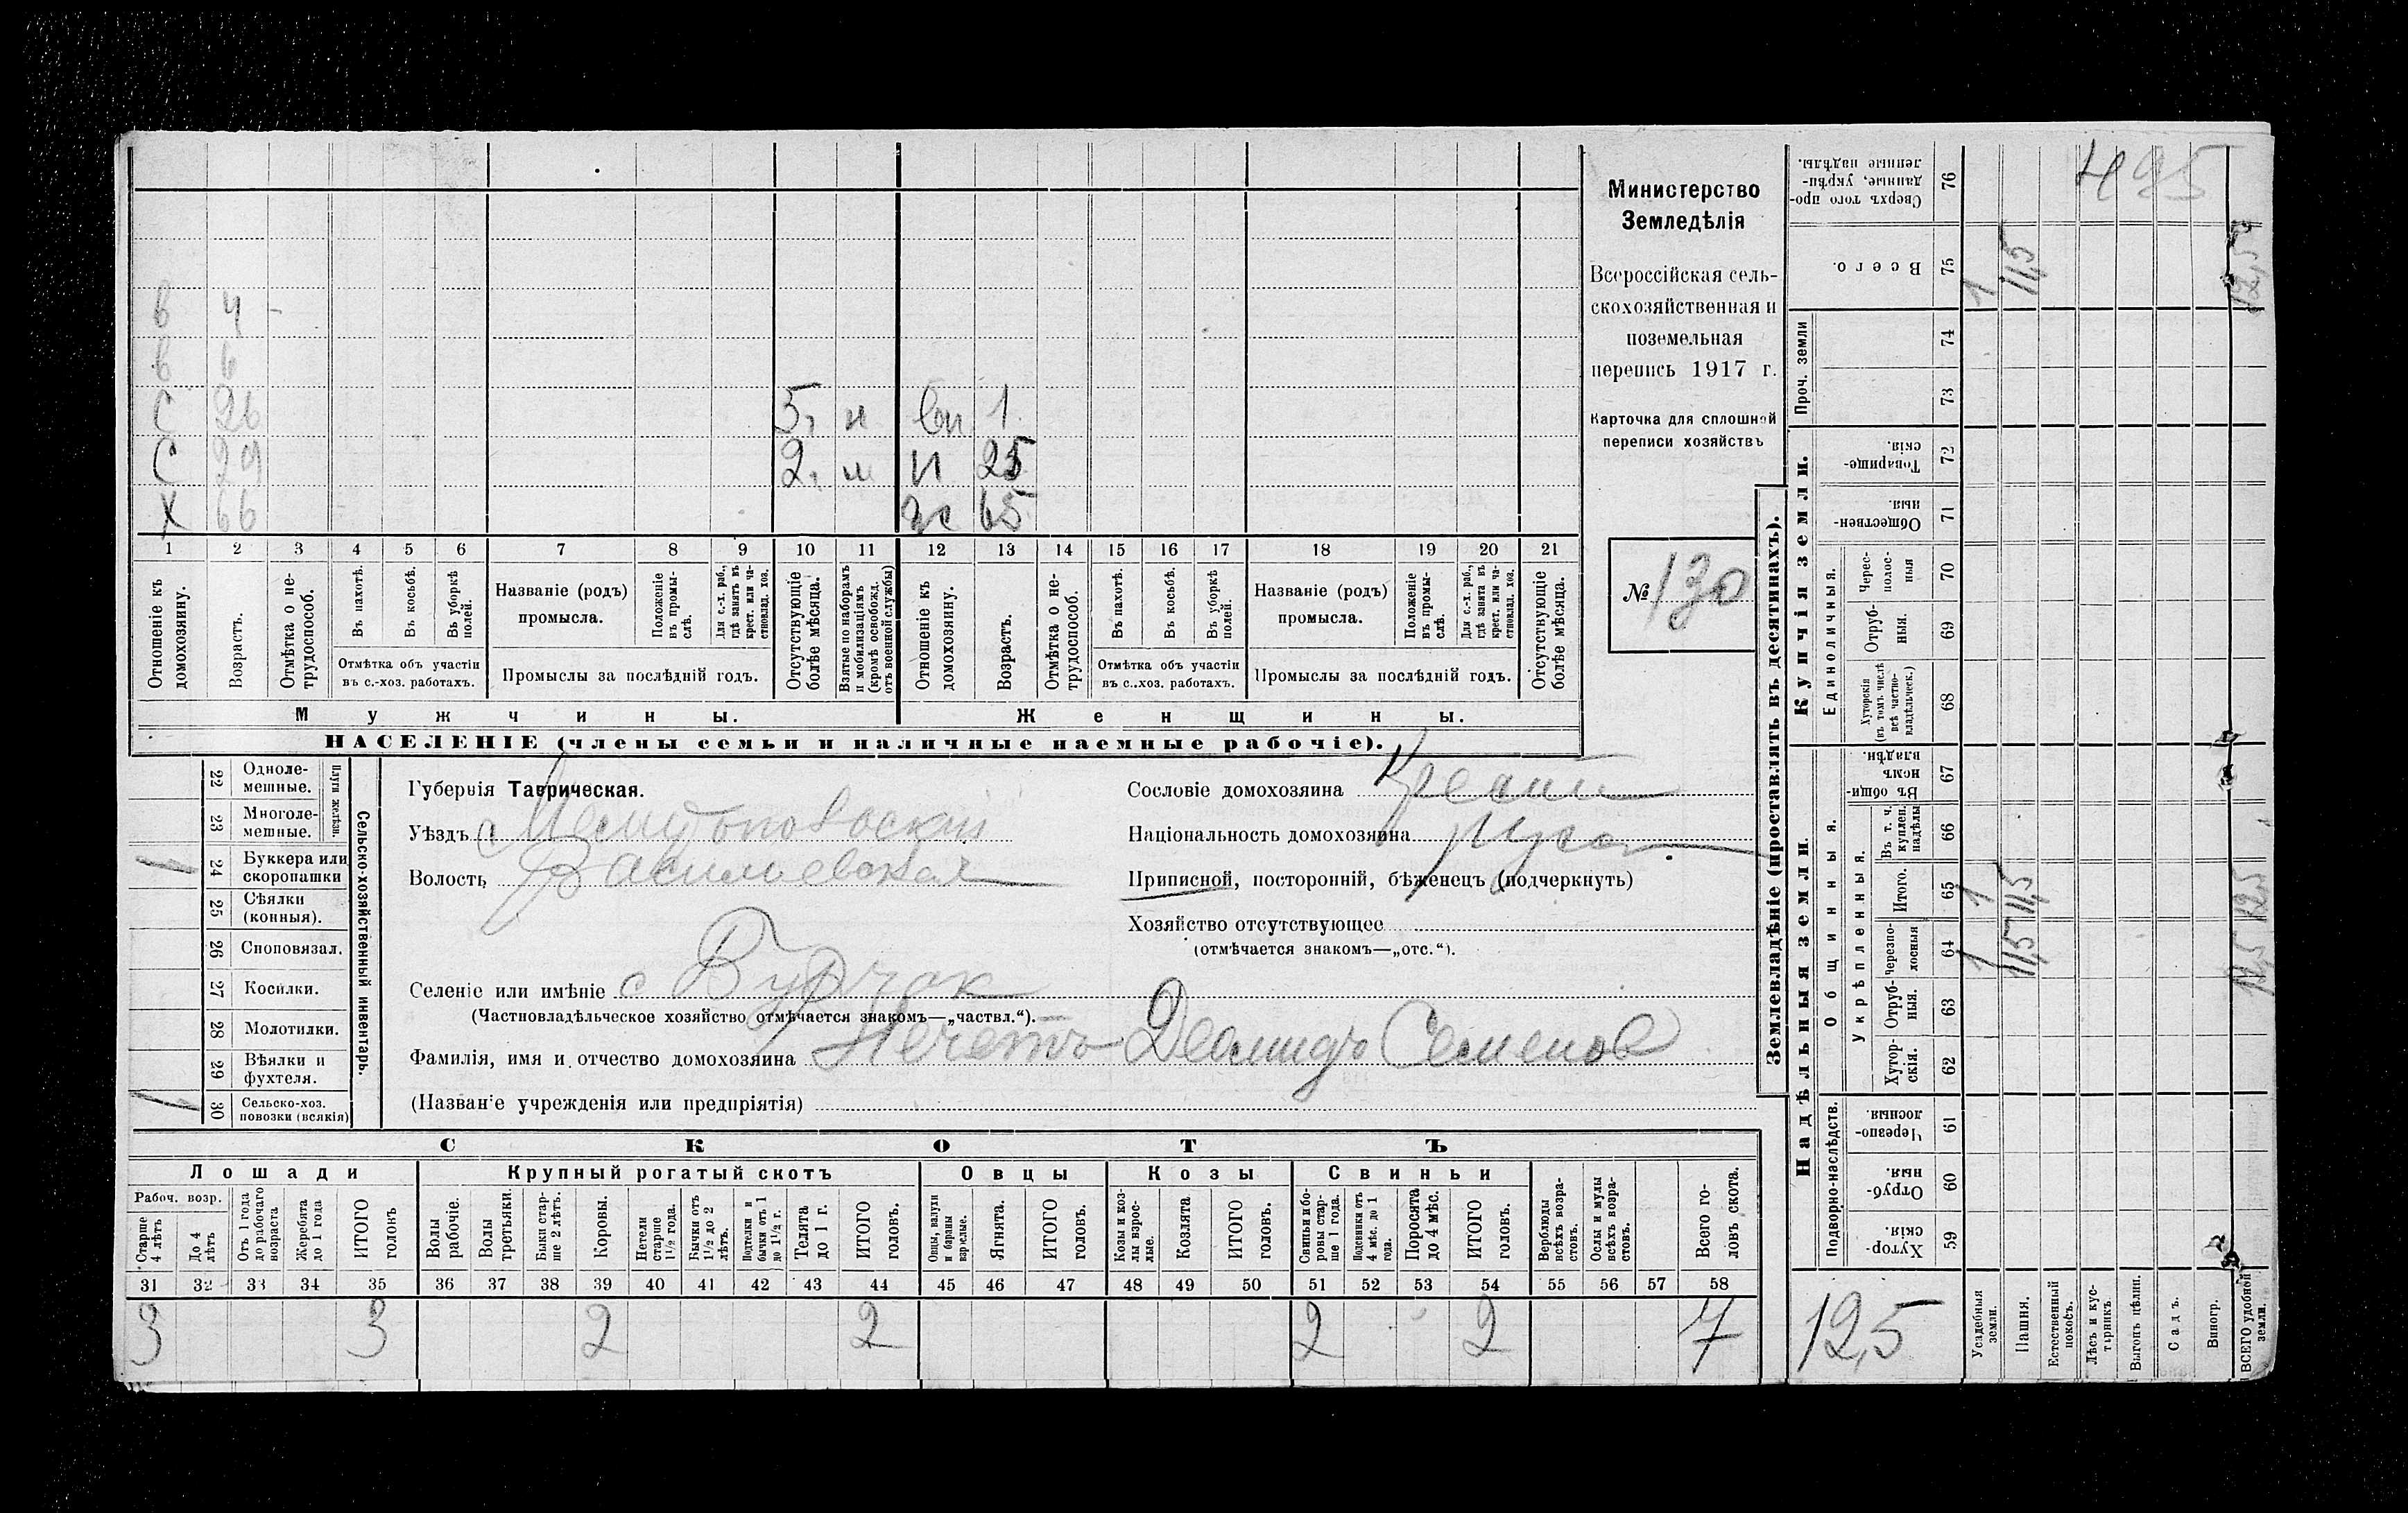 Министерство
Земледѣлія
Всероссійская сель-
скохозяйственная и
поземельная
перепись 1917 г.
Карточка для сплошной
переписи хозяйствъ
№ 130
в 4
в 6
С 26 5, н вн 1
С 29 2, м н 25
Х 66 ж 65
1 2 3 4 5 6 7 8 9 10 11 12 13 14 15 16 17 18 19 20 21
Отношеніе къ домохозяину.
Возрастъ.
Отмѣтка о не-трудоспособ.
Въ пахотѣ.
Въ косьбѣ.
Въ уборкѣ полей.
Отмѣтка объ участіи
въ с.-хоз. работахъ.
Названіе (родъ)
промысла.
Положеніе въ промы-слѣ.
Для с.-х. раб., гдѣ занятъ въ крест. или ча-стновлад. хоз.
Промыслы за послѣдній годъ.
Отсутствующіе болѣе мѣсяца.
Взятые по наборамъ и мобилизаціямъ (кромѣ освобожд. отъ военной службы)
Отношеніе къ домохозяину.
Возрастъ.
Отмѣтка о не-трудоспособ.
Въ пахотѣ.
Въ косьбѣ.
Въ уборкѣ полей.
Отмѣтка объ участіи
въ с.-хоз. работахъ.
Названіе (родъ)
промысла.
Положеніе въ промы-слѣ.
Для с.-х. раб., гдѣ занята въ крест. или ча-стновлад. хоз.
Промыслы за послѣдній годъ.
Отсутствующіе болѣе мѣсяца.
Мужчины. Женщины.
НАСЕЛЕНІЕ (члены семьи и наличные наемные рабочіе).
Сельско-хозяйственный инвентарь.
Плуги желѣзн.
22 Одноле-мешные.
23 Многоле-мешные.
1 24 Буккера или скоропашки
25 Сѣялки (конныя).
26 Споповязал.
27 Косилки.
28 Молотилки.
29 Вѣялки и фухтеля.
1 30 Сельско-хоз. повозки (всякія)
Губернія Таврическая.
Уѣздъ Мелитопольскій
Волость Васильевская
Селеніе или имѣніе с Бурчак
(Частновладѣльческое хозяйство отмѣчается знакомъ—„частвл.“).
Фамилія, имя и отчество домохозяина Демидъ Семенов
(Названіе учрежденія или предпріятія)
Сословіе домохозяина крестьян
Національность домохозяина русс
Приписной, посторонній, бѣженецъ (подчеркнуть)
Хозяйство отсутствующее
(отмѣчается знакомъ—„отс.“).
СКОТЪ
Лошади Крупный рогатый скотъ Овцы Козы Свиньи
Рабоч. возр.
Старше 4 лѣтъ
До 4 лѣтъ
Отъ 1 года до рабочаго возраста
Жеребята до 1 года
ИТОГО головъ
Волы рабочіе.
Волы третьяки.
Быки стар-ше 2 лѣтъ.
Коровы.
Нетели старше 1½ года.
Бычки отъ 1½ до 2 лѣтъ.
Подтелки и бычки отъ 1 до 1½ г.
Телята до 1 г.
ИТОГО головъ.
Овцы, валухи и бараны взрослые.
Ягнята.
ИТОГО головъ.
Козы и коз-лы взрос-лые.
Козлята
ИТОГО головъ.
Свиньи и бо-ровы стар-ше 1 года.
Подсвинки отъ 4 мѣс. до 1 года.
Поросята до 4 мѣс.
ИТОГО головъ.
Верблюды всѣхъ возра-стовъ.
Ослы и мулы всѣхъ возра-стовъ.
Всего го-ловъ скота.
31 32 33 34 35 36 37 38 39 40 41 42 43 44 45 46 47 48 49 50 51 52 53 54 55 56 57 58
3 3 2 2 2 2 7
Землевладѣніе (проставлять въ десятинахъ).
495
76 Сверхъ того про-данные, укрѣп-ленные надѣлы.
75 Всего. 1 11,5 12,5
Купчія земли.
Проч. земли
74
73
72 Товарище-скія.
71 Обществен-ныя.
Единоличныя.
70 Черес-полос-ныя
69 Отруб-ныя.
68 Хуторскія (въ томъ числѣ всѣ частно-владѣльческ.)
Надѣльныя земли.
Общинныя.
67 Въ общи-номъ владѣн.
Укрѣпленныя.
66 Въ т. ч. куплен. надѣлы
65 Итого. 1 11,5 12,5
64 Черезпо-лосныя 1 11,5 12,5
63 Отруб-ныя.
62 Хутор-скія.
Подворно-наслѣдств.
61 Черезпо-лосныя.
60 Отруб-ныя.
59 Хутор-скія.
12,5
Усадебныя земли.
Пашня.
Естественный покосъ.
Лѣсъ и кус-тарникъ
Выгонъ цѣлин.
Садъ.
Виногр.
ВСЕГО удобной земли.